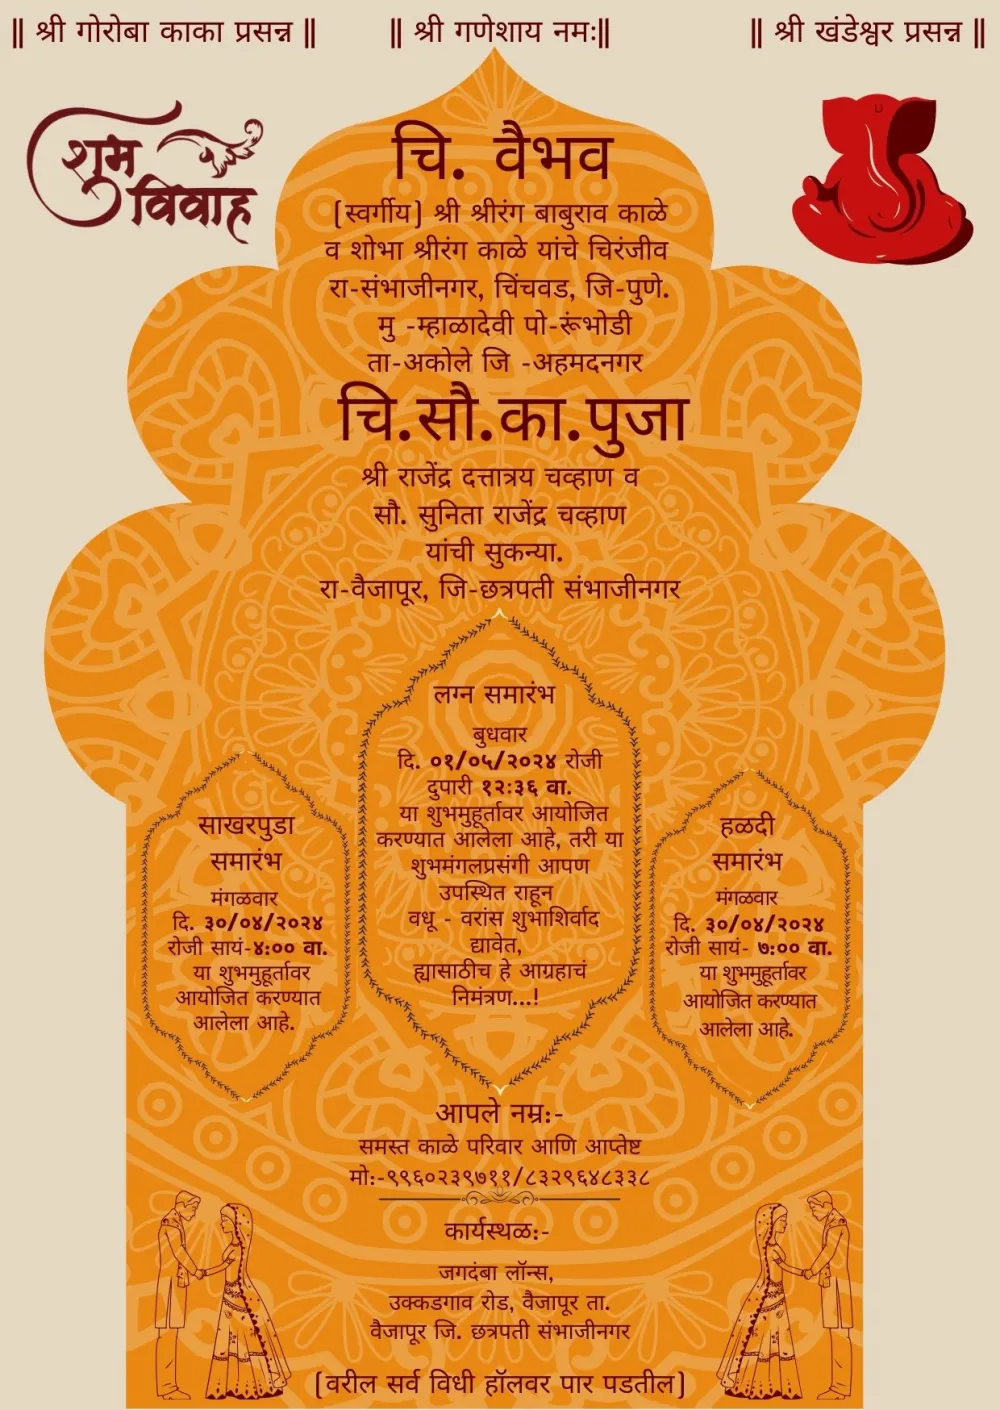 || श्री गोरोबा काका प्रसन्न ||
|| श्री गणेशाय नमः||
|| श्री खंडेश्वर प्रसन्न ||
शुभ
विवाह
चि. वैभव
(स्वर्गीय) श्री श्रीरंग बाबुराव काळे
व शोभा श्रीरंग काळे यांचे चिरंजीव
रा-संभाजीनगर, चिंचवड, जि-पुणे.
मु -म्हाळादेवी पो-रूंभोडी
ता-अकोले जि -अहमदनगर
चि.सौ.का.पुजा
श्री राजेंद्र दत्तात्रय चव्हाण व
सौ. सुनिता राजेंद्र चव्हाण
यांची सुकन्या.
रा-वैजापूर, जि-छत्रपती संभाजीनगर
साखरपुडा
समारंभ
मंगळवार
दि. ३०/०४/२०२४
रोजी सायं-४:०० वा.
या शुभमुहूर्तावर
आयोजित करण्यात
आलेला आहे.
लग्न समारंभ
बुधवार
दि. ०१/०५/२०२४ रोजी
दुपारी १२:३६ वा.
या शुभमुहूर्तावर आयोजित
करण्यात आलेला आहे, तरी या
शुभमंगलप्रसंगी आपण
उपस्थित राहून
वधू - वरांस शुभाशिर्वाद
द्यावेत,
ह्यासाठीच हे आग्रहाचं
निमंत्रण...!
हळदी
समारंभ
मंगळवार
दि. ३०/०४/२०२४
रोजी सायं- ७:०० वा.
या शुभमुहूर्तावर
आयोजित करण्यात
आलेला आहे.
आपले नम्र:-
समस्त काळे परिवार आणि आप्तेष्ट
मो:-९९६०२३९७११/८३२९६४८३३८
कार्यस्थळ:-
जगदंबा लॉन्स,
उक्कडगाव रोड, वैजापूर ता.
वैजापूर जि. छत्रपती संभाजीनगर
(वरील सर्व विधी हॉलवर पार पडतील)